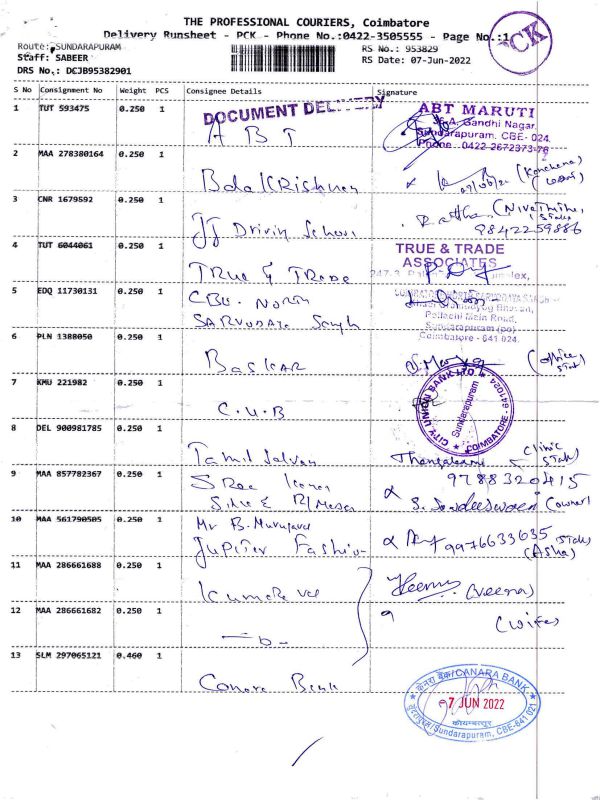 THE PROFESSIONAL COURIERS, Coimbatore
Delivery Runsheet - PCK - Phone No.:0422-3505555 - Page No.:1
PCK
Route: SUNDARAPURAM
RS No.: 953829
Staff: SABEER
RS Date: 07-Jun-2022
DRS No.: DCJB95382901
S No Consignment No Weight PCS Consignee Details Signature
1 TUT 593475 0.250 1
DOCUMENT DELIVERY
A B T
ABT MARUTI
Gandhi Nagar,
Sundarapuram, CBE- 024.
Phone 0422 2672373-76
2 MAA 278380164 0.250 1
Bala Krishnan
3 CNR 1679592 0.250 1
JJ Drivin School
9842259886
4 TUT 6044061 0.250 1
True & Trade
TRUE & TRADE
ASSOCIATES
5 EDQ 11730131 0.250 1
CBE. NORTH
SARVODAYA Sangh
Pollachi Main Road,
Sundarapuram (po)
Coimbatore - 641 024.
6 PLN 1388050 0.250 1
Baskar
(office
7 KMU 221982 0.250 1
C.U.B
CITY UNION BANK LTD
Sundarapuram
COIMBATORE - 641024
8 DEL 900981785 0.250 1
Tamil Selvan
Clinic
9 MAA 857782367 0.250 1
Sree
9788320415
(owner)
10 MAA 561790505 0.250 1
Mr B. Murugavel
Jupiter Fashion
9976633635
(Asha)
11 MAA 286661688 0.250 1
Kumaravel
(Veena)
12 MAA 286661682 0.250 1
(wife)
13 SLM 297065121 0.460 1
Canara Bank
केनरा बैंक/CANARA BANK
-7 JUN 2022
कोयम्बत्तूर
Sundarapuram, CBE-641 021